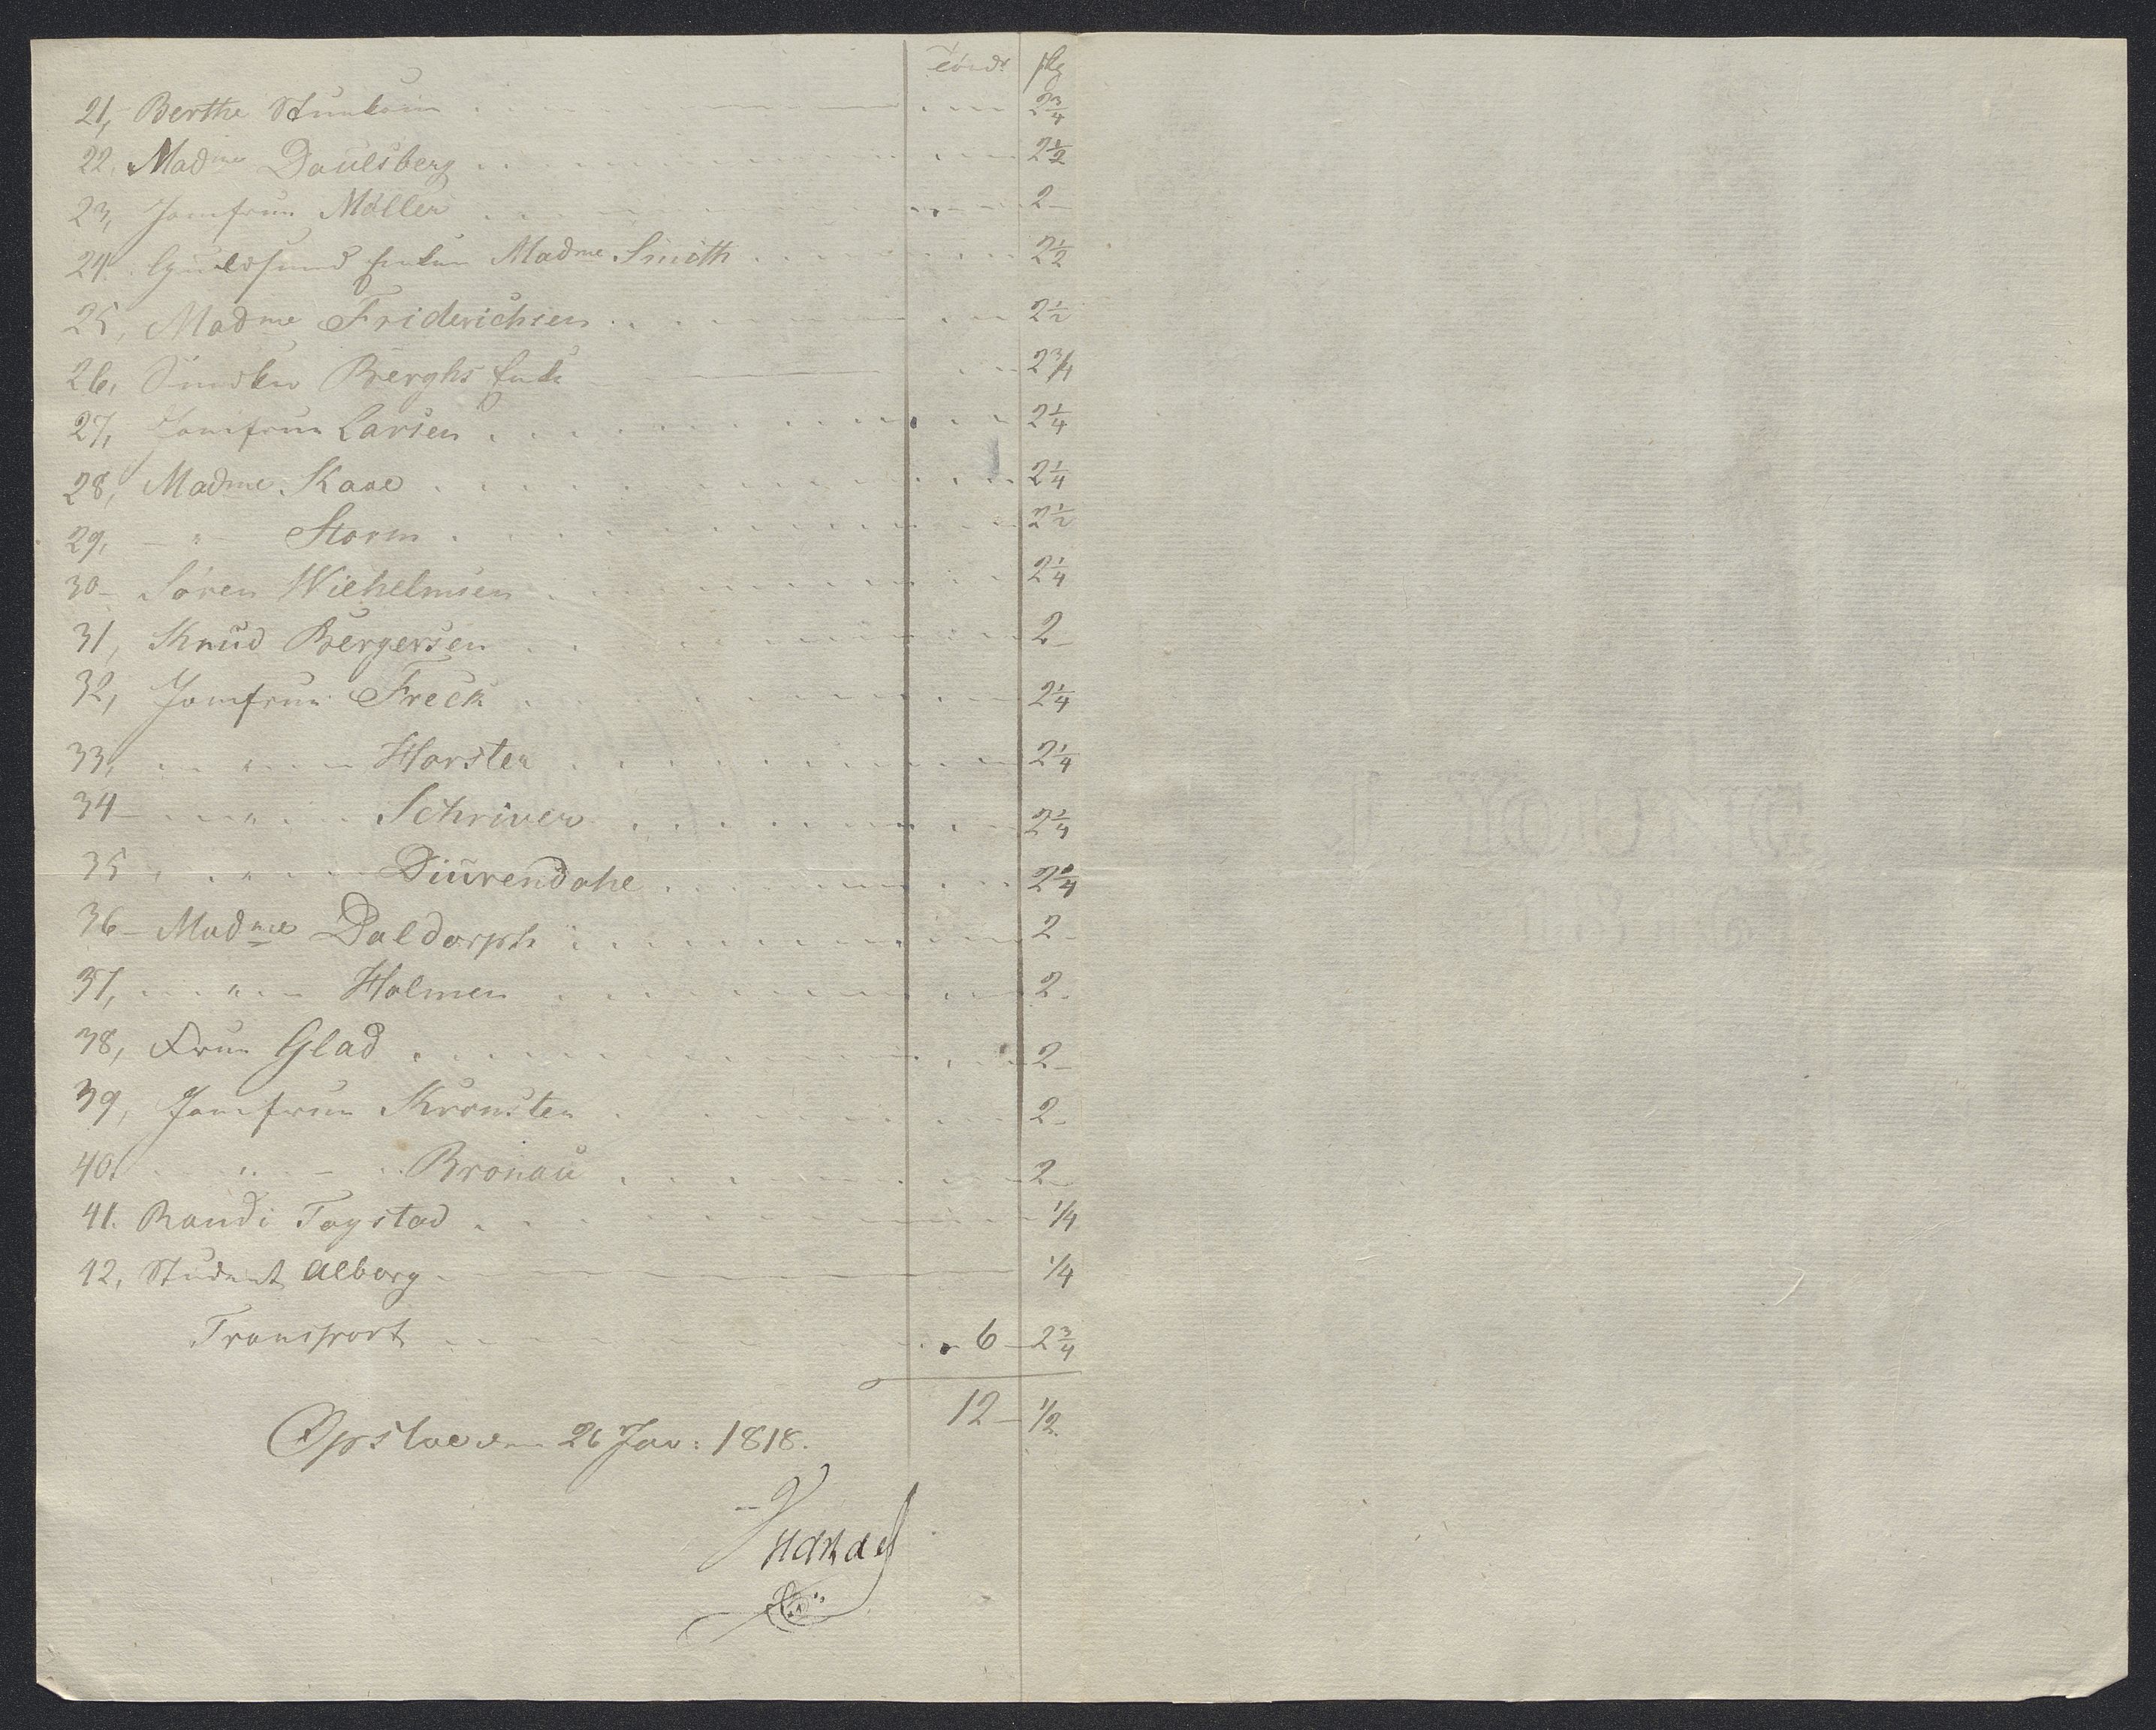 Tönd. skp
21, Berthe 2 3/4
22. Madme Paulsberg 2 1/2
23, Jomfrue Møller 2 —
24. Enken Madme Smith 2 1/2
25, Madme Friderichsen 2 1/2
26, Berghs Enke 2 3/4
27, Jomfrue Larsen 2 1/4
28, Madme Kaae 2 1/4
29, — " — Storm 2 1/2
30 — Søren Wilhelmsen 2 1/4
31, Knud Bergersen 2 —
32, Jomfrue Freck 2 1/4
33, " Horster 2 1/4
34 — " Schriver 2 1/4
35 " Diürendahl
36 — Madme Daldorph 2 —
37, " Holmen 2 —
38, Frue Glad 2 —
39, Jomfrue Kronsten 2 —
40. " Bronau 2 —
41. Randi Togstad 1/4
42, Student Alborg 1/4
Transport 6 — 2 3/4
12 — 1/2
Opsloe den 26 Jan: 1818.